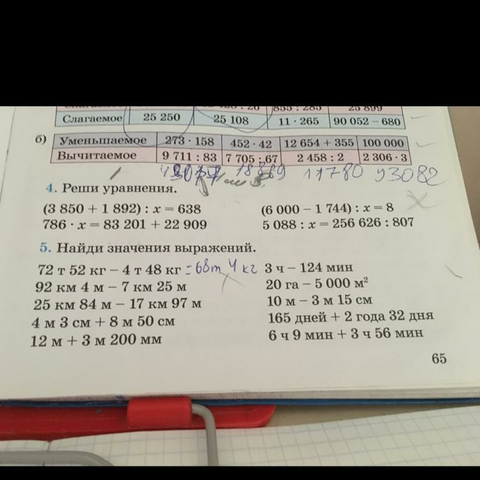 855 : 285 25 899
Слагаемое 25 250 25 108 11 · 265 90 052 – 680
б)
Уменьшаемое 273 · 158 452 · 42 12 654 + 355 100 000
Вычитаемое 9 711 : 83 7 705 : 67 2 458 : 2 2 306 · 3
11780 93082
4. Реши уравнения.
(3 850 + 1 892) : x = 638 (6 000 – 1 744) : x = 8
786 · x = 83 201 + 22 909 5 088 : x = 256 626 : 807
5. Найди значения выражений.
72 т 52 кг – 4 т 48 кг = 68т 4 кг 3 ч – 124 мин
92 км 4 м – 7 км 25 м 20 га – 5 000 м²
25 км 84 м – 17 км 97 м 10 м – 3 м 15 см
4 м 3 см + 8 м 50 см 165 дней + 2 года 32 дня
12 м + 3 м 200 мм 6 ч 9 мин + 3 ч 56 мин
65